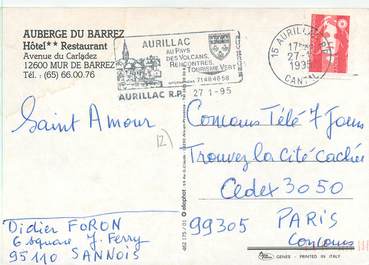 AUBERGE DU BARREZ
Hôtel** Restaurant
Avenue du Carladez
12600 MUR DE BARREZ
Tél. : (65) 66.00.76
AURILLAC
AU PAYS
DES VOLCANS,
RENCONTRES,
TOURISME VERT
71484858
AURILLAC R.P.
27-1-95
15 AURILLAC
17
27-1
1995
CANTAL
Saint Amour
12
Concours Télé 7 Jours
Trouvez la Cité cachée
Cedex 3050
99305 PARIS
Concours
Didier FORON
6 square J. Ferry
95110 SANNOIS
elcophot
GENES - PRINTED IN ITALY